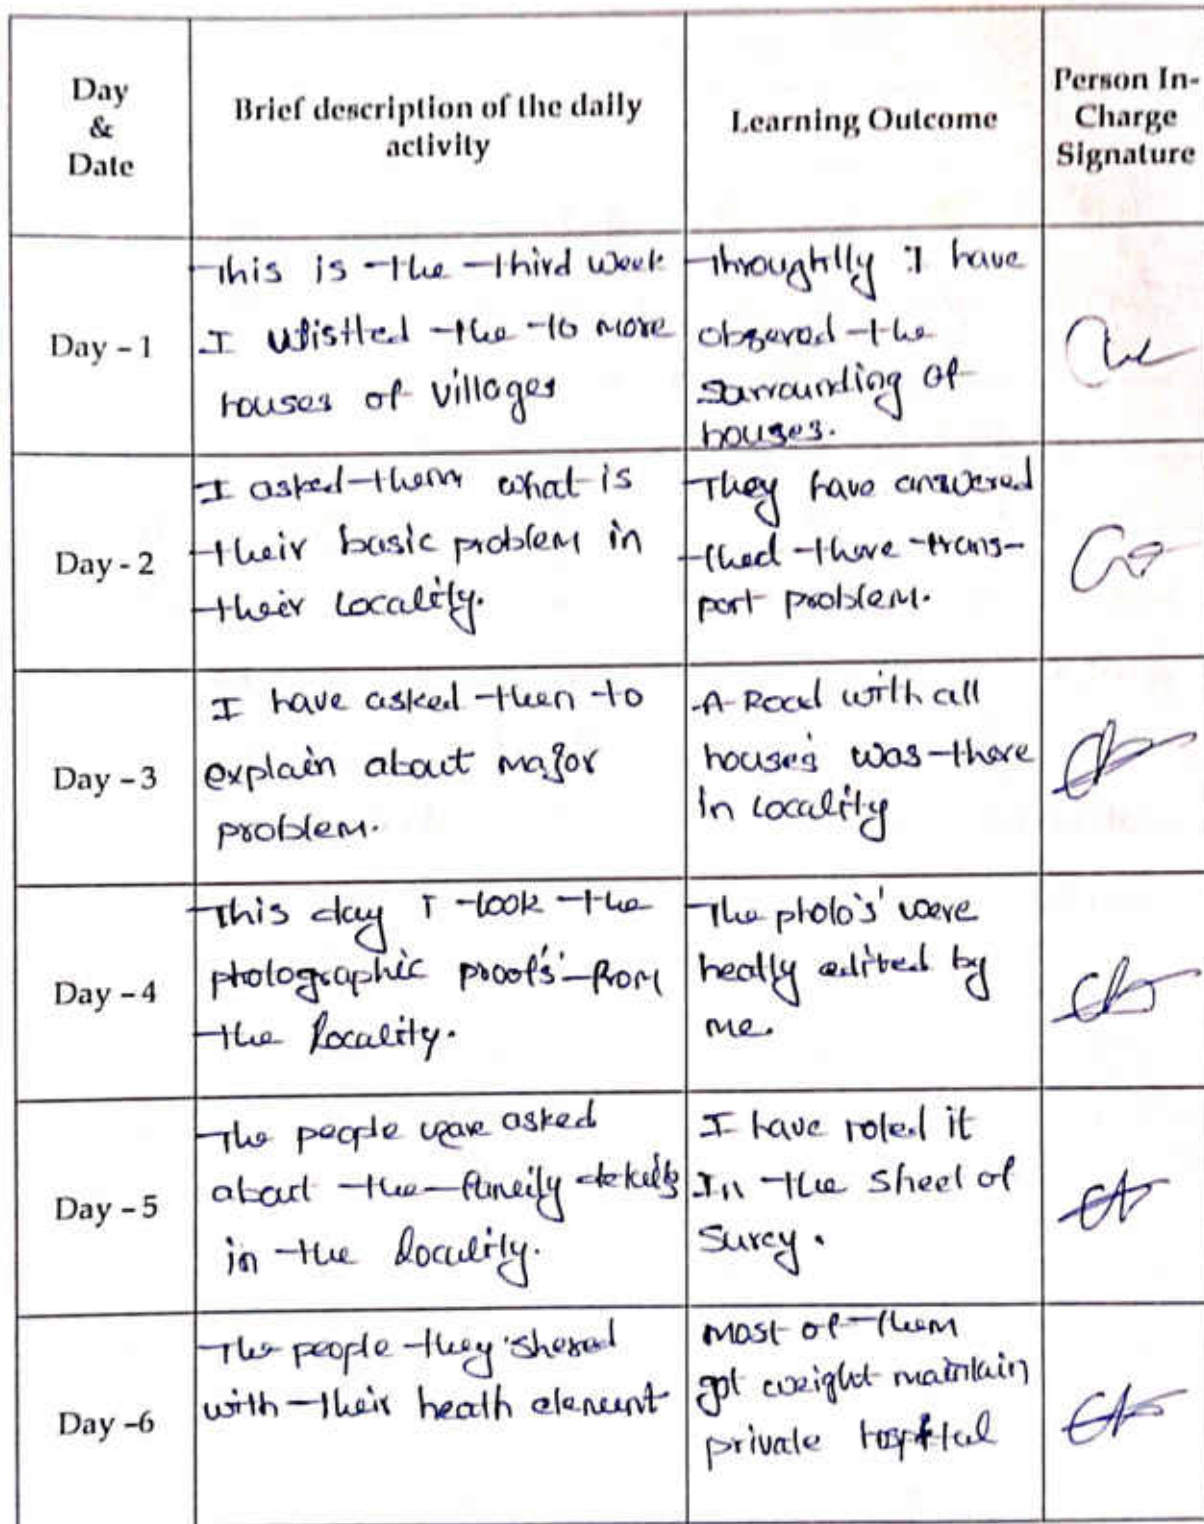 Day
&
Date
Brief description of the daily
activity
Learning Outcome
Person In-
Charge
Signature
Day - 1
This is the third week
I visitted the to more
houses of villages
Throughtlly I have
obserod the
surrounding of
houses.
Day - 2
I asked them what is
their basic problem in
their locality.
They have answered
thed there trans-
port problem.
Day - 3
I have asked then to
explain about major
problem.
A Road with all
houses was there
in locality
Day - 4
This day I took the
photographic proofs from
the locality.
The photo's were
heally edited by
me.
Day - 5
The people were asked
about the family details
in the locality.
I have roted it
In the sheet of
Surey.
Day -6
The people they shered
with their heath
Most of them
got weight maintain
private hospital